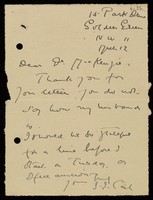 14 Park Drive
Golders Green
N W 11
April 12
Dear Dr MacKenzie
Thank you for
your letter. You do not
say how my husband
is.
I should be so grateful
for a line before I
on a Tuesday, or